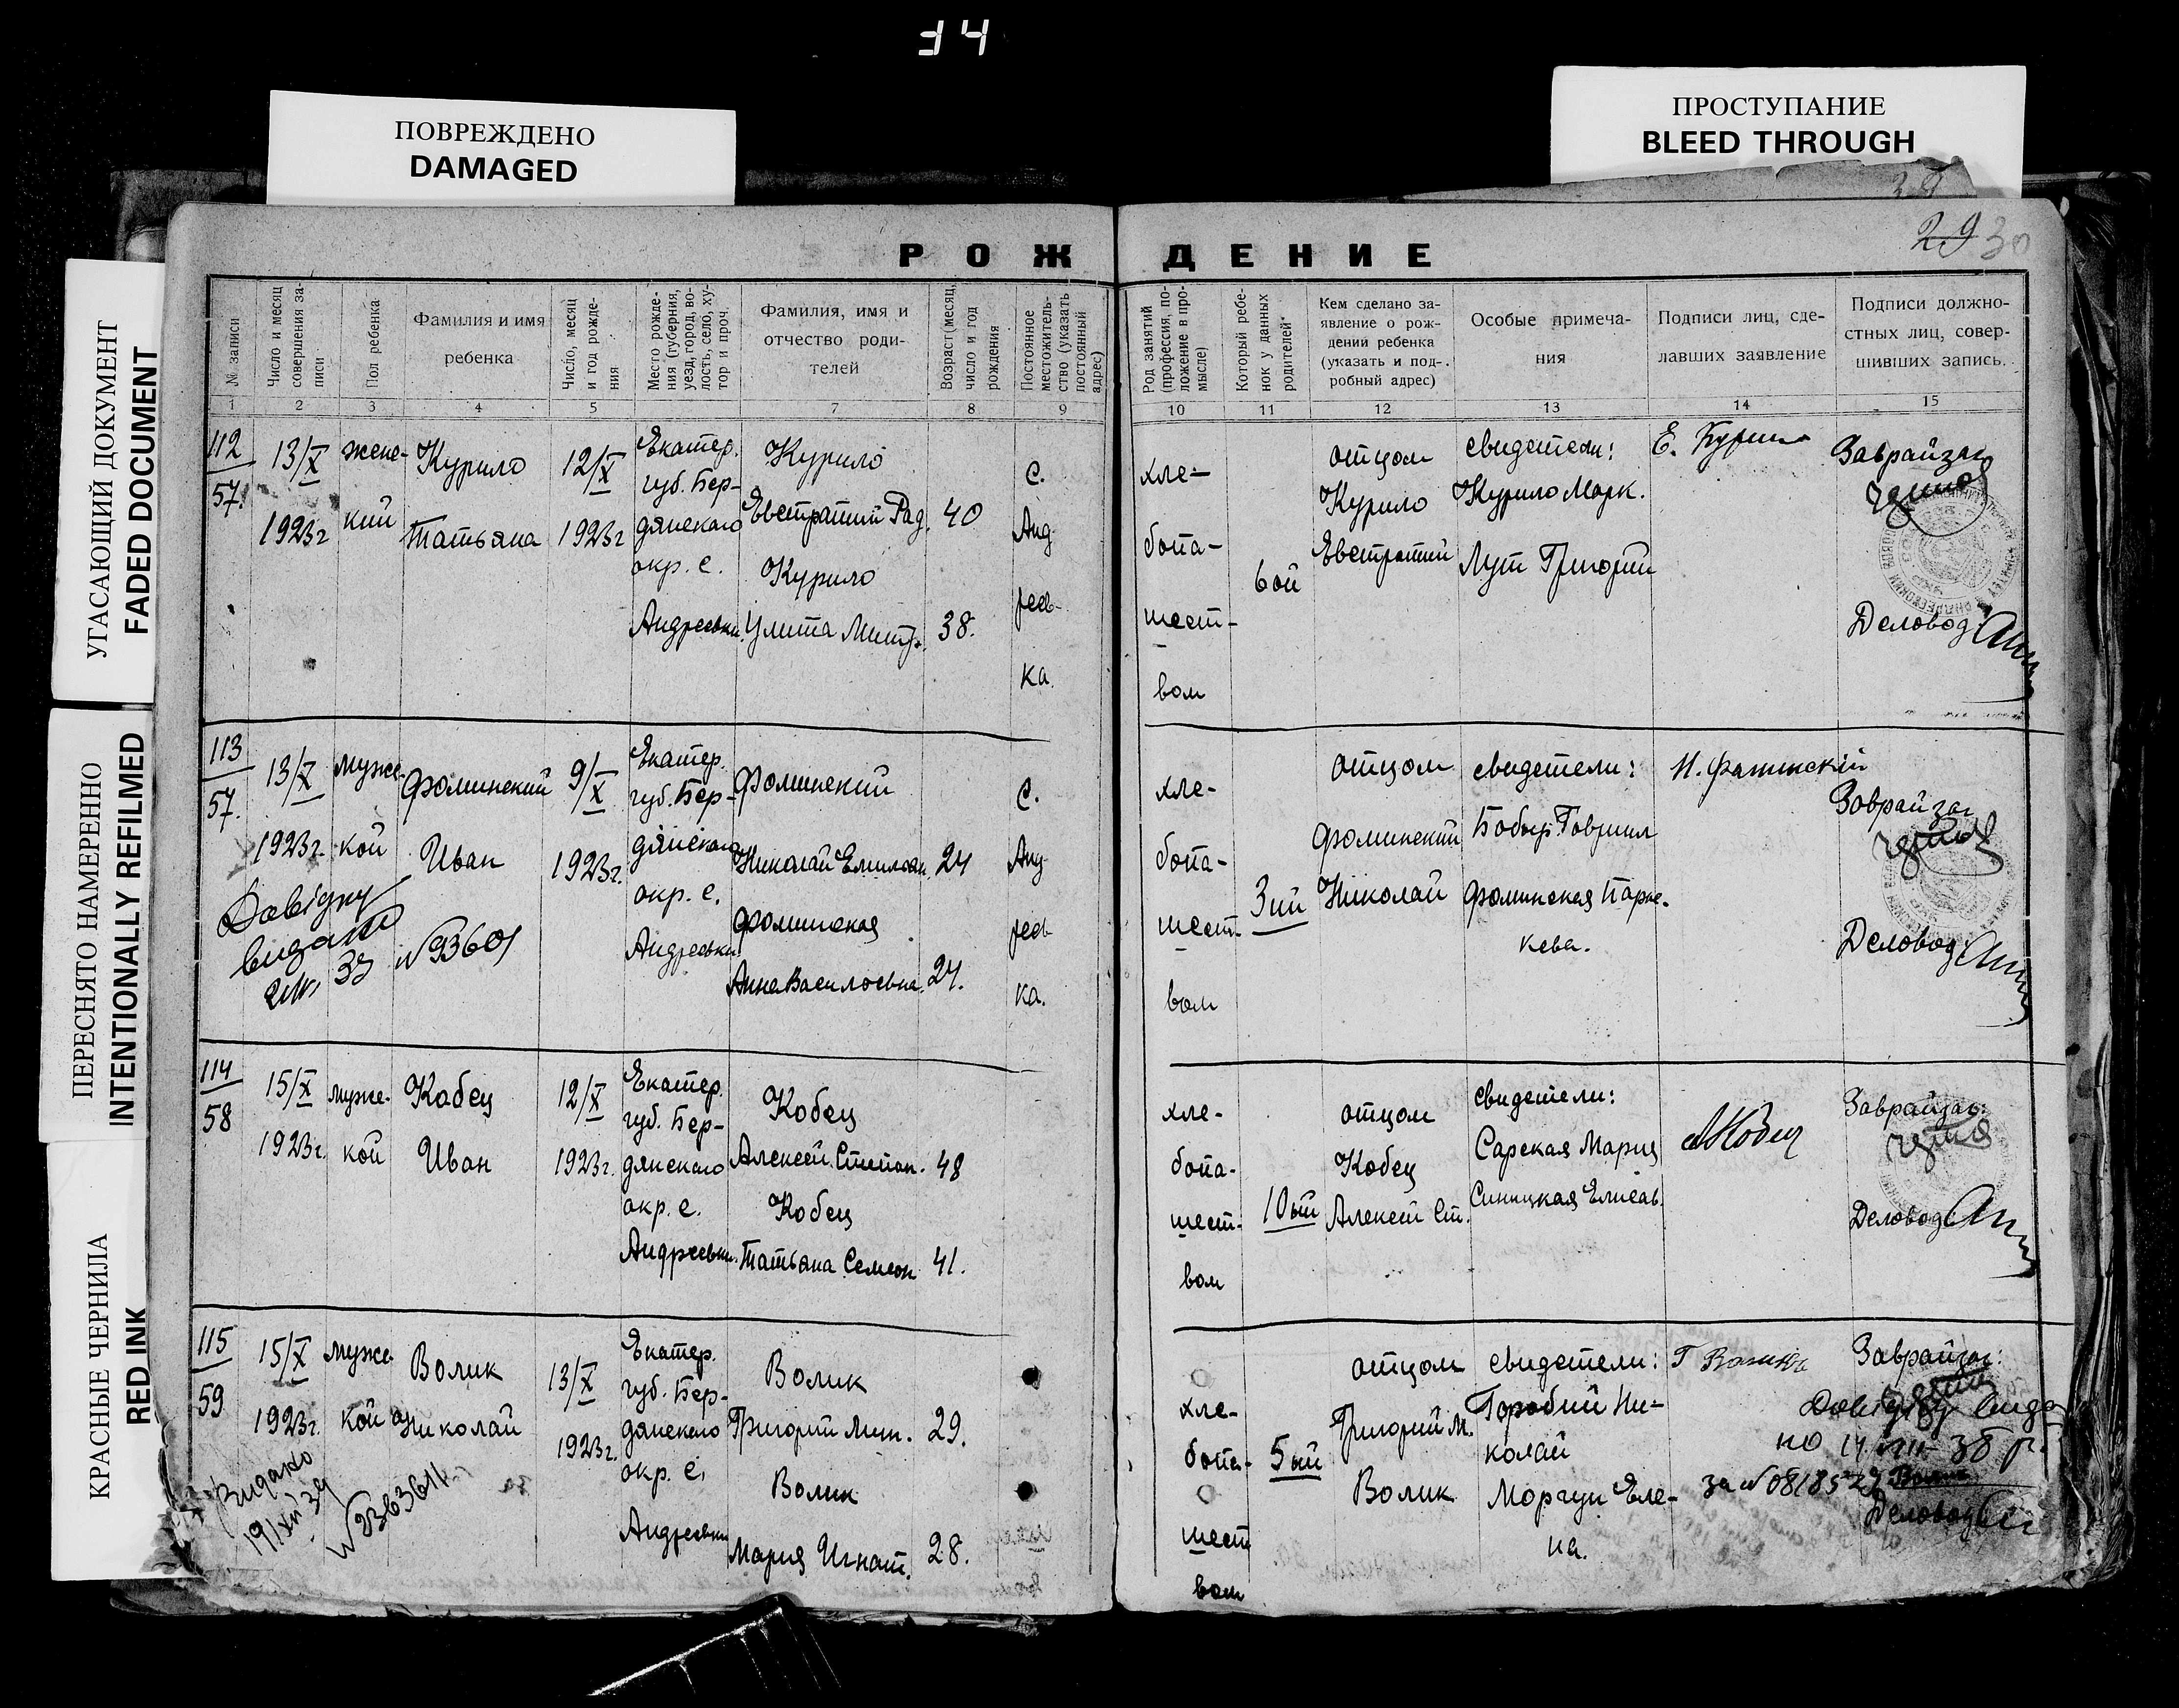 34
ПОВРЕЖДЕНО
DAMAGED
ПРОСТУПАНИЕ
BLEED THROUGH
УГАСАЮЩИЙ ДОКУМЕНТ
FADED DOCUMENT
ПЕРЕСНЯТО НАМЕРЕННО
INTENTIONALLY REFILMED
КРАСНЫЕ ЧЕРНИЛА
RED INK
29 30
РОЖДЕНИЕ
№ записи
Число и месяц
совершения за-
писи
Пол ребенка
Фамилия и имя
ребенка
Число, месяц
и год рожде-
ния
Место рожде-
ния (губерния,
уезд, город, во-
лость, село, ху-
тор и проч.
Фамилия, имя и
отчество роди-
телей
Возраст (месяц,
число и год
рождения
Постоянное
местожитель-
ство (указать
постоянный
адрес)
Род занятий
(профессия, по-
ложение в про-
мысле)
Который ребе-
нок у данных
родителей
Кем сделано за-
явление о рож-
дении ребенка
(указать и под-
робный адрес)
Особые примеча-
ния
Подписи лиц, сде-
лавших заявление
Подписи должно-
стных лиц, совер-
шивших запись.
1 2 3 4 5 6 7 8 9 10 11 12 13 14 15
112
57.
13/X
1923г
женс-
кий
Курило
Татьяна
12/X
1923г
Екатер.
губ. Бер-
дянского
окр. с.
Андреевки
Курило
Евстратий Рад.
Курило
Улита Митр.
40
38.
с.
Анд
реев-
ка.
хле-
бопа-
шест-
вом
6ой
отцом
Курило
Евстратий
свидетели:
Курило Марк.
Лут Григорий
Е. Курило
Заврайзаг
Деловод.
113
57.
13/X
1923г.
мужс-
кой
Фоминский
Иван
9/X
1923г.
Екатер.
губ. Бер-
дянского
окр. с.
Андреевки
Фоминский
Николай Емильян.
Фоминская
Анна Васильевна.
24
24.
с.
Анд
реев
ка.
хле-
бопа-
шест-
вом
3ий
отцом
Фоминский
Николай
свидетели:
Бобыр Гавриил
Фоминская Парас-
кева.
Н. Фаминский
Заврайзаг
Деловод.
Довідку
видано
№ 93601
114
58
15/X
1923г.
мужс-
кой
Кобец
Иван
12/X
1923г.
Екатер.
губ. Бер-
дянского
окр. с.
Андреевки.
Кобец
Алексей Степан.
Кобец
Татьана Семеон
48
41.
хле-
бопа-
шест-
вом
10ый
отцом
Кобец
Алексей Ст.
свидетели:
Сарская Мария
Синицкая Елисав.
А Кобец
Заврайзаг:
Деловод
115
59
15/X
1923г.
мужс
кой
Волик
Николай
13/X
1923г.
Екатер.
губ. Бер-
дянского
окр. с.
Андреевки
Волик
Григорий Мин.
Волик
Мария Игнат.
29.
28.
хле-
бопа-
шест
вом
5ый
отцом
Григорий М.
Волик
свидетели:
Горобий Ни-
колай
Моргун Еле-
на.
Г Волик
Заврайзаг:
Довідку вида
но
Деловод
Видано